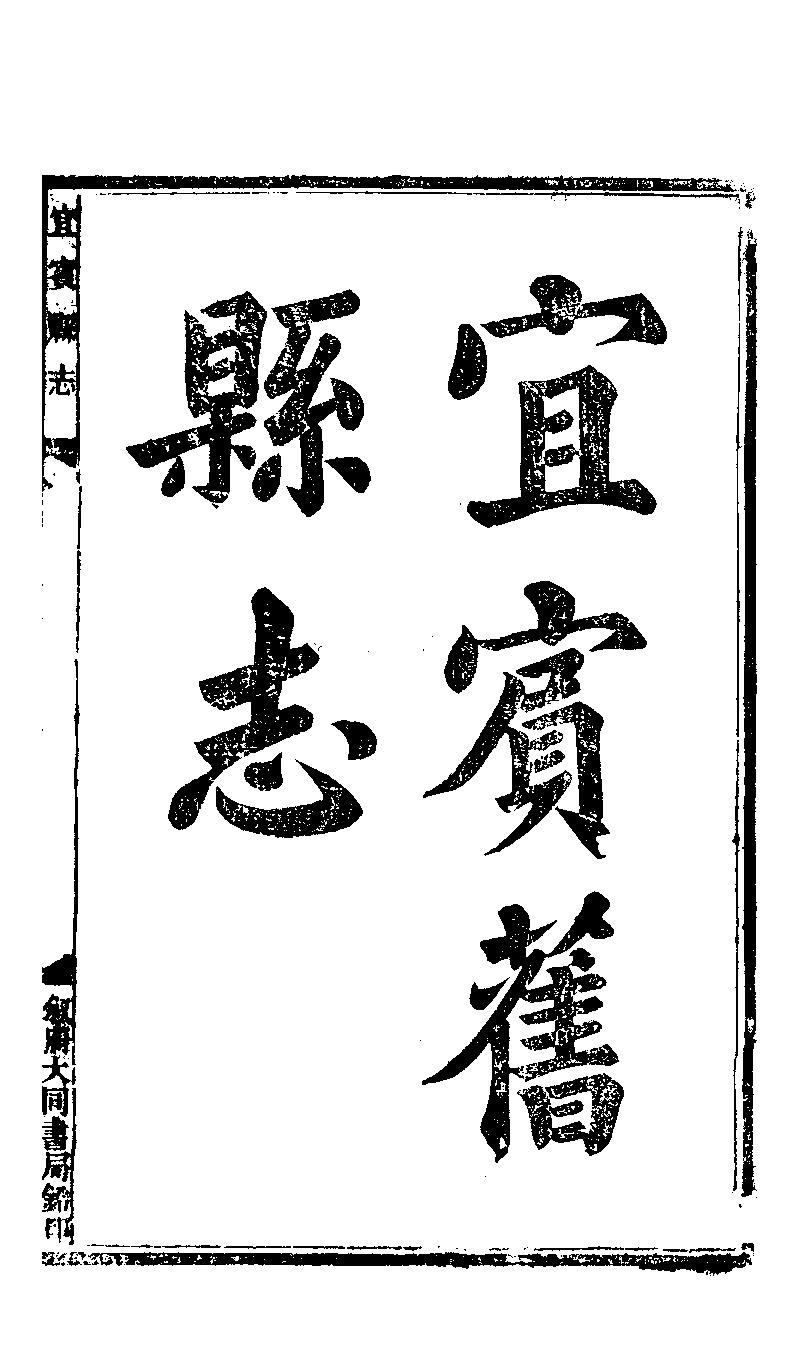 宜賓舊
縣志
宜賓縣志
敘府大同書局鉛印